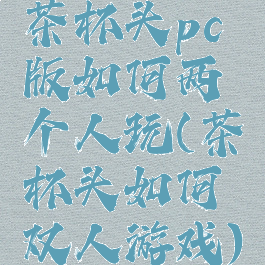 茶杯头pc
版如何两
个人玩(茶
杯头如何
双人游戏)